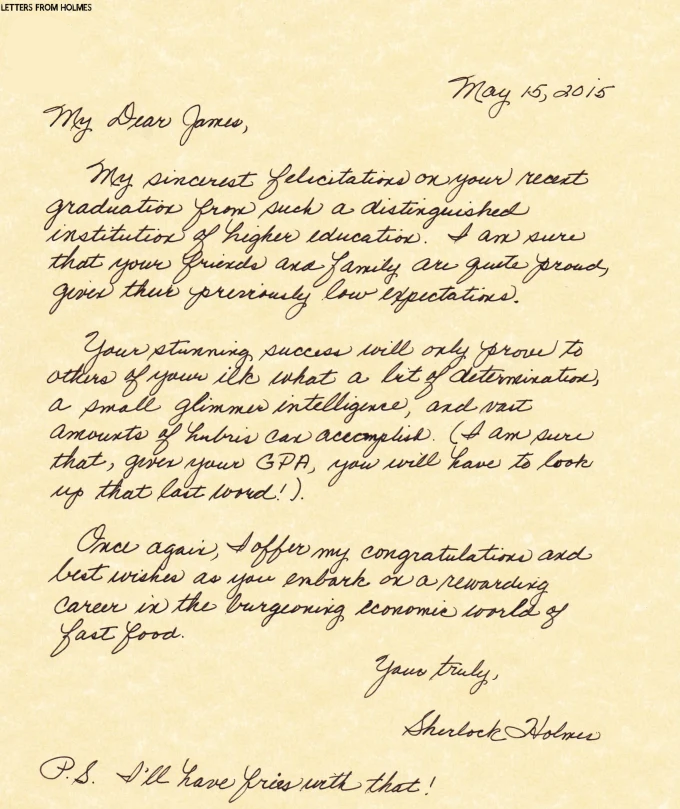 LETTERS FROM HOLMES
May 15, 2015
My Dear James,
My sincerest felicitations on your recent
graduation from such a distinguished
institution of higher education. I am sure
that your friends and family are quite proud,
given their previously low expectations.
Your stunning success will only prove to
others of your ilk what a bit of determination,
a small glimmer intelligence, and vast
amounts of hubris can accomplish. (I am sure
that, given your GPA, you will have to look
up that last word!).
Once again, I offer my congratulations and
best wishes as you embark on a rewarding
career in the burgeoning economic world of
fast food.
Yours truly,
Sherlock Holmes
P.S. I'll have fries with that!